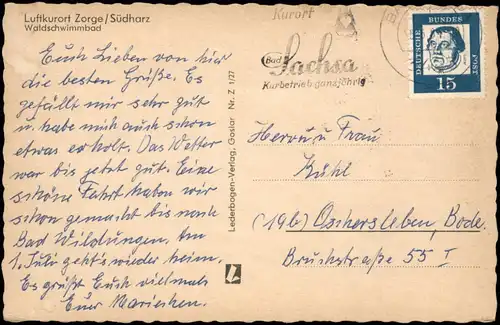 Luftkurort Zorge/Südharz
Waldschwimmbad
Euch Lieben von hier
die besten Grüße. Es
gefällt mir sehr gut
u. habe mich auch schon
etwas erholt. Das Wetter
war bis jetzt gut. Eine
schöne Fahrt haben wir
schon gemacht bis nach
Bad Wildungen. Am
1. Juli geht's wieder heim.
Es grüßt Euch vielmals
Eure Mariechen.
Lederbogen-Verlag, Goslar Nr. Z 1/27
Kurort
Bad Sachsa
Kurbetrieb ganzjährig
DEUTSCHE BUNDESPOST
15
Herrn u. Frau
Kühl
(19b) Oschersleben, Bode.
Bruchstraße 55 I